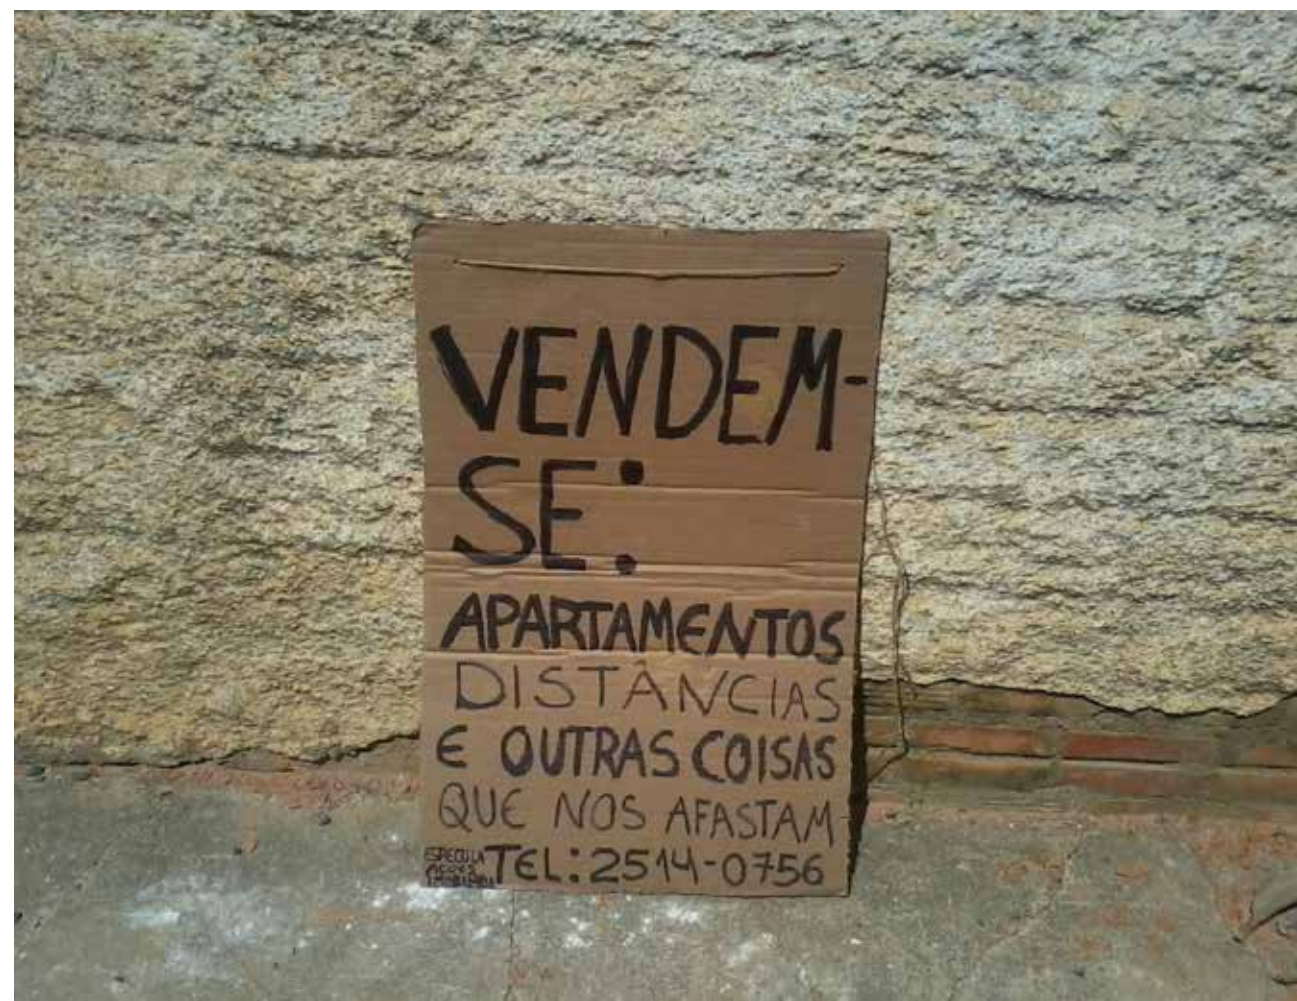 VENDEM-
SE:
APARTAMENTOS
DISTÂNCIAS
E OUTRAS COISAS
QUE NOS AFASTAM
ESPECULA
TEL: 2514-0756